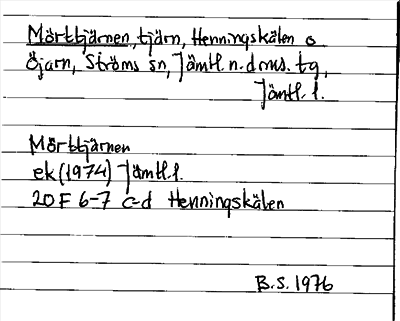 Mörttjärnen, tjärn, Henningskälen o
Öjarn, Ströms sn, Jämtl. n. dms. tg,
Jämtl. l.
Mörttjärnen
ek (1974) Jämtl. l.
20 F 6-7 c-d Henningskälen
B.S. 1976